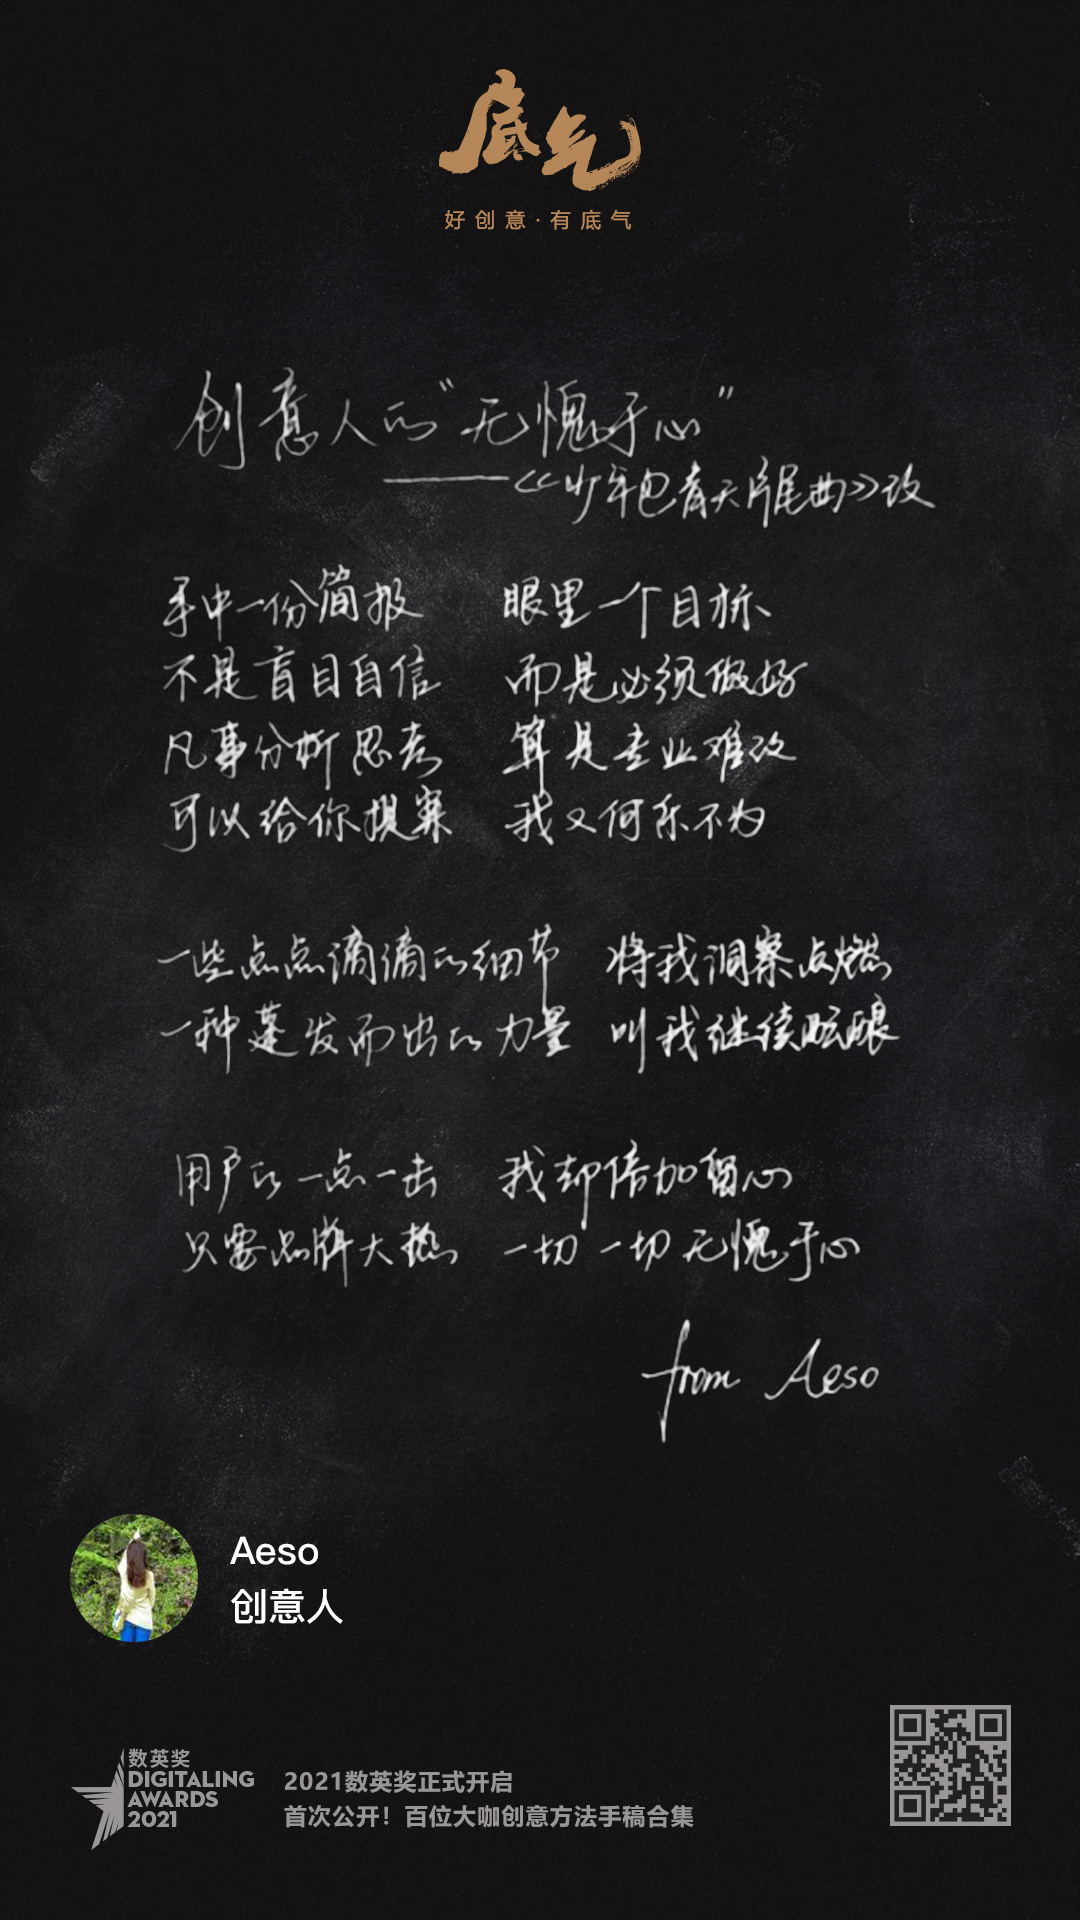 底气
好创意·有底气
创意人的“无愧于心”
——《少年包青天片尾曲》改
手中一份简报 眼里一个目标
不是盲目自信 而是必须做好
凡事分析思考 算是专业难改
可以给你提案 我又何乐不为
一些点点滴滴的细节 将我洞察点燃
一种蓬发而出的力量 叫我继续眩酿
用户的一点一击 我却倍加留心
只要品牌大热 一切一切无愧于心
from Aeso
Aeso
创意人
数英奖
DIGITALING
AWARDS
2021
2021数英奖正式开启
首次公开！百位大咖创意方法手稿合集